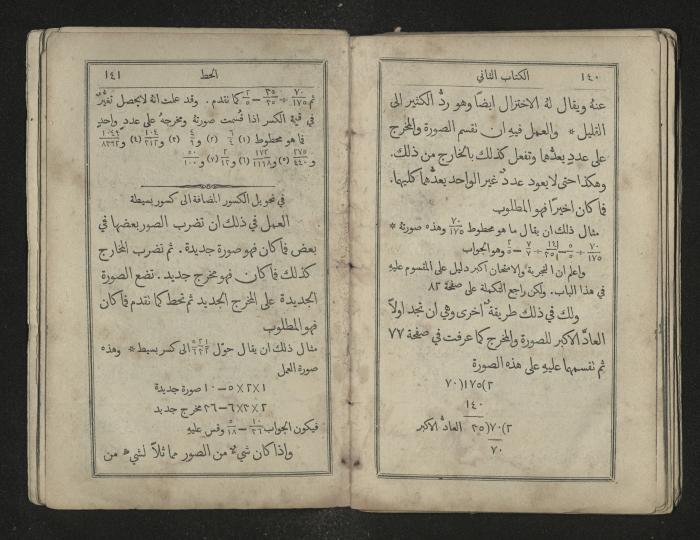 ١٤٠ الكتاب الثاني
عنهُ ويقال لهُ الاختزال ايضاً وهو ردُّ الكثير الى
القليل * والعمل فيهِ ان نقسم الصورة والمخرج
على عددٍ يعدُّهما وتفعل كذلك بالخارج من ذلك.
وهكذا حتى لا يعود عددٌ غير الواحد يعدُّهما كليهما.
فما كان اخيراً فهو المطلوب
مثال ذلك ان يقال ما هو محطوط ٧٠/١٧٥ وهذه صورتهُ *
وهو الجواب
واعلم ان التجربة والامتحان اكبر دليل على المقسوم عليهِ
في هذا الباب. ولكن راجع التكملة على صفحة ٨٣
ولك في ذلك طريقةٌ أخرى وهي ان تجد اولاً
العادَّ الاكبر للصورة والمخرج كما عرفت في صفحة ٧٧
ثم نقسمها عليهِ على هذه الصورة
٧٠)١٧٥(٢
١٤٠
٣٥)٧٠(٢ العادُّ الاكبر
٧٠
الحط ١٤١
ثم ٧٠/١٧٥ ÷ ٣٥/٣٥ = ٢/٥ كما تقدم. وقد علمت انهُ لا يحصل تغيُّرٌ
في قيمة الكسر اذا قُسمت صورتهُ ومخرجهُ على عددٍ واحدٍ
فما هو محطوط (١) ٦/٤ (٢) ٤/٦ (٣) و١٠٤/٣١٢ (٤) و١٠٤٩/٨٣٩٢
و٢٧٥/٤٤٠ (٥) و١٧٣/١١٦٨ (٦) و٢/١٢ (٧) و٥٠/١٠٠
في تحويل الكسور المضافة الى كسور بسيطة
العمل في ذلك ان تضرب الصور بعضها في
بعض فما كان فهو صورة جديدة. ثم تضرب المخارج
كذلك فما كان فهو مخرج جديد. تضع الصورة
الجديدة على المخرج الجديد ثم تحط كما تقدم فما كان
فهو المطلوب
مثال ذلك ان يقال حوّل الى كسر بسيط * وهذه
صورة العمل
١×٢×٥=١٠ صورة جديدة
٢×٣×٦=٣٦ مخرج جديد
فيكون الجواب ١٠/٣٦=٥/١٨ وقس عليهِ
واذا كان شيءٌ من الصور مماثلاً لشيءٍ من